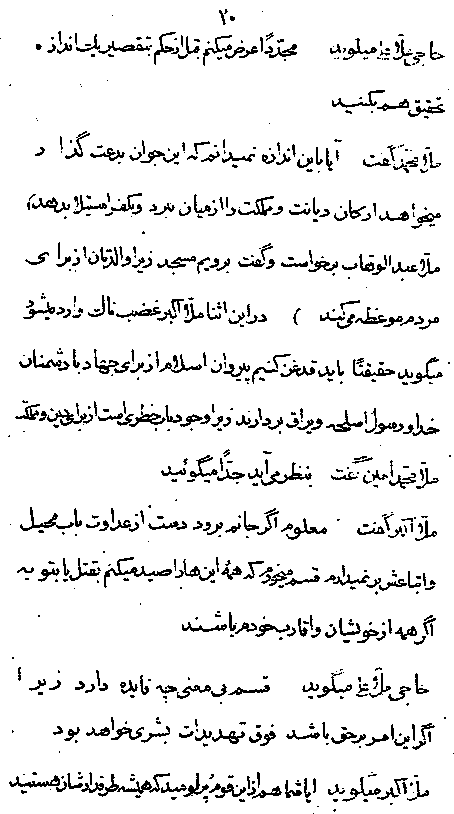 ۲۰
حاجی ملا میگوید مجدّداً عرض میکنم قبل از حکم بتقصیر یک انداز ه
تحقیق هم بکنید
ملا محمد گفت آیا باین اندازه نمیدانم که این جوان بدعت گذا ر
میخواهد ارکان دیانت و مملکت را از میان ببرد و بکفر استیلا بدهد)
ملا عبدالوهاب برخواست و گفت برویم مسجد زیرا والدتان از برا ی
مردم موعظه میکنید ) در این اثنا ملا اکبر غضب ناک وارد میشود
میگوید حقیقتاً باید قدغن کنیم پیروان اسلام از برای جهاد با دشمنان
خدا و رسول اسلحه و یراق بردارند زیرا وجود باب خطری است از برای دین و مملکت
ملا محمد امین گفت بنظر می آید جدّاً میگوئید
ملا اکبر گفت معلوم اگر جانم برود دست از عداوت باب محیل
و اتباعش بر نمیدارم قسم میخورم که همهٔ این ها را صید میکنم بقتل یا بتوبه
اگر همه از خویشان و اقارب خودم باشند
حاجی ملا میگوید قسم بی معنی چه فایده دارد زیر ا
اگر این امر بر حق باشد فوق تهدیدات بشری خواهد بود
ملا اکبر میگوید آیا شما هم از این قوم پر لومید که همیشه طرفدارشان هستید